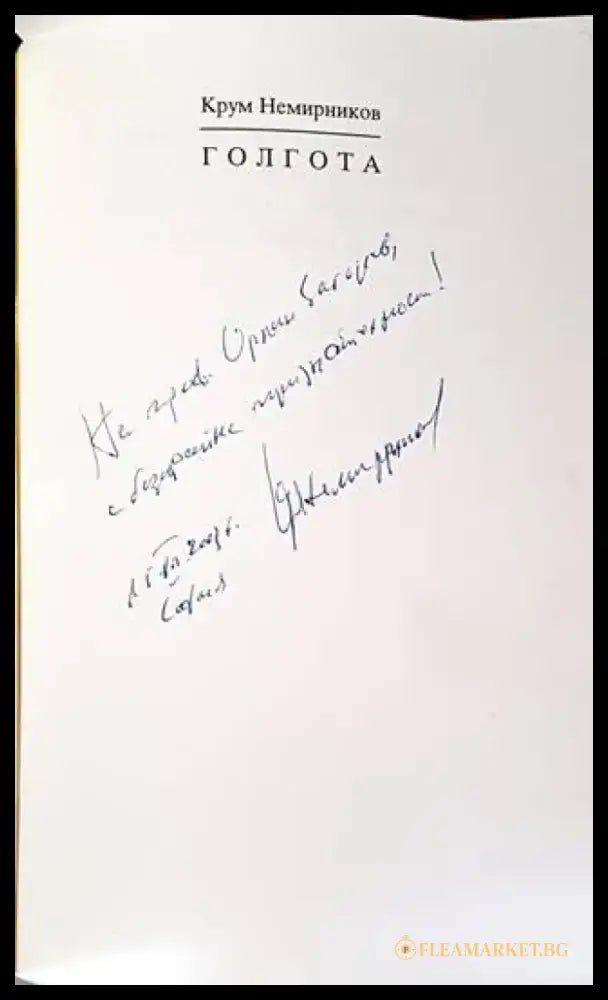 Крум Немирников
ГОЛГОТА
На проф. Орлин Загоров,
с безкрайна признателност!
2007г.
София
FLEAMARKET.BG